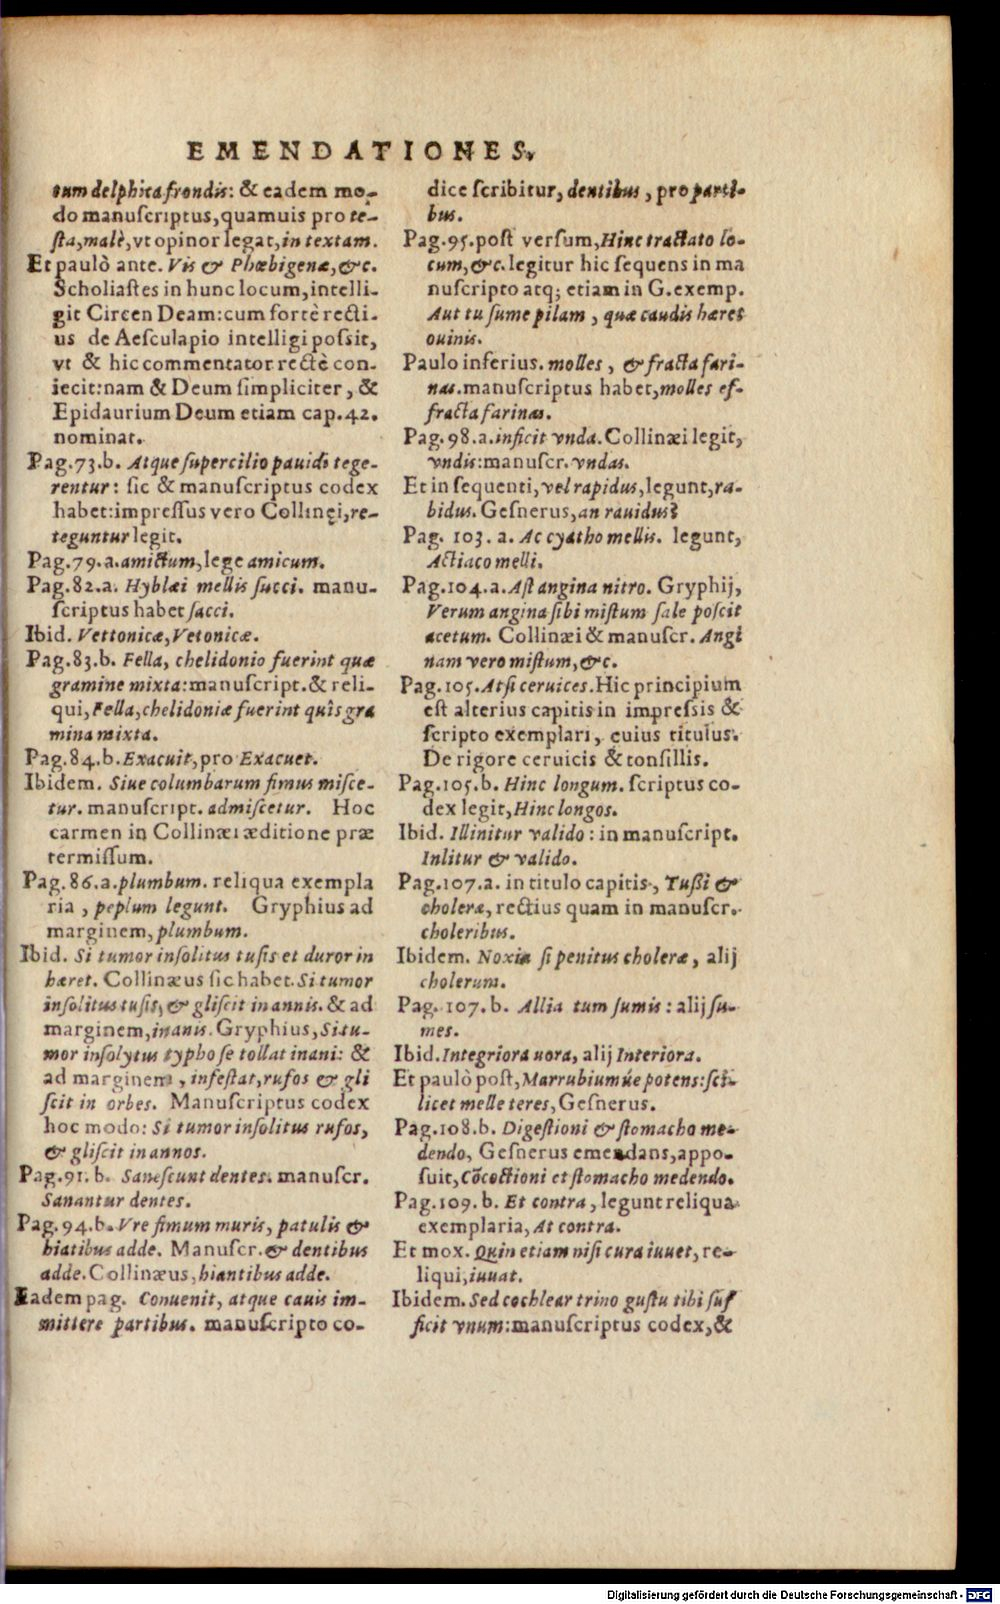 EMENDATIONES.
tum delphica frondis: & eadem mo-
do manuscriptus, quamuis pro te-
sta, malè, vt opinor legat, in textam.
Et paulò ante. Vis & Phœbigenæ, &c.
Scholiastes in hunc locum, intelli-
git Circen Deam: cum fortè recti-
us de Aesculapio intelligi possit,
vt & hic commentator rectè con-
iecit: nam & Deum simpliciter, &
Epidaurium Deum etiam cap. 42.
nominat.
Pag. 73. b. Atque supercilio pauidi tege-
rentur: sic & manuscriptus codex
habet: impressus vero Collinęi, re-
teguntur legit.
Pag. 79. a. amictum, lege amicum.
Pag. 82. a. Hyblæi mellis succi. manu-
scriptus habet sacci.
Ibid. Vettonicæ, Vetonicæ.
Pag. 83. b. Fella, chelidonio fuerint quæ
gramine mixta: manuscript. & reli-
qui, Fella, chelidoniæ fuerint quîs gra
mina mixta.
Pag. 84. b. Exacuit, pro Exacuet.
Ibidem. Siue columbarum fimus misce-
tur. manuscript. admiscetur. Hoc
carmen in Collinæi æditione præ
termissum.
Pag. 86. a. plumbum. reliqua exempla
ria, peplum legunt. Gryphius ad
marginem, plumbum.
Ibid. Si tumor insolitus tusis et duror in
hæret. Collinæus sic habet. Si tumor
insolitus tusis, & gliscit in annis. & ad
marginem, inanis. Gryphius, Si tu-
mor insolytus typho se tollat inani: &
ad marginem, infestat, rufos & gli
scit in orbes. Manuscriptus codex
hoc modo: Si tumor insolitus rufos,
& gliscit in annos.
Pag. 91. b. Sanescunt dentes. manuscr.
Sanantur dentes.
Pag. 94. b. Vre fimum muris, patulis &
hiatibus adde. Manuscr. & dentibus
adde. Collinæus, hiantibus adde.
Eadem pag. Conuenit, atque cauis im-
mittere partibus. manuscripto co-
dice scribitur, dentibus, pro parti-
bus.
Pag. 95. post versum, Hinc tractato lo-
cum, &c. legitur hic sequens in ma
nuscripto atq; etiam in G. exemp.
Aut tu sume pilam, quæ caudis hæret
ouinis.
Paulo inferius. molles, & fracta fari-
nas. manuscriptus habet, molles ef-
fracta farinas.
Pag. 98. a. inficit vnda. Collinæi legit,
vndis: manuscr. vndas.
Et in sequenti, vel rapidus, legunt, ra-
bidus. Gesnerus, an rauidus?
Pag. 103. a. Ac cyatho mellis. legunt,
Actiaco melli.
Pag. 104. a. Ast angina nitro. Gryphij,
Verum angina sibi mistum sale poscit
acetum. Collinæi & manuscr. Angi
nam vero mistum, &c.
Pag. 105. At si ceruices. Hic principium
est alterius capitis in impressis &
scripto exemplari, cuius titulus.
De rigore ceruicis & tonsillis.
Pag. 105. b. Hinc longum. scriptus co-
dex legit, Hinc longos.
Ibid. Illinitur valido: in manuscript.
Inlitur & valido.
Pag. 107. a. in titulo capitis, Tussi &
choleræ, rectius quam in manuscr.
choleribus.
Ibidem. Noxia si penitus choleræ, alij
cholerum.
Pag. 107. b. Allia tum sumis: alij su-
mes.
Ibid. Integriora uora, alij Interiora.
Et paulò post, Marrubiumúe potens: sci-
licet melle teres, Gesnerus.
Pag. 108. b. Digestioni & stomacho me-
dendo, Gesnerus emendans, appo-
suit, Cōcoctioni et stomacho medendo.
Pag. 109. b. Et contra, legunt reliqua
exemplaria, At contra.
Et mox. Quin etiam nisi cura iuuet, re-
liqui, iuuat.
Ibidem. Sed cochlear trino gustu tibi suf
ficit vnum: manuscriptus codex, &
Digitalisierung gefördert durch die Deutsche Forschungsgemeinschaft - DFG